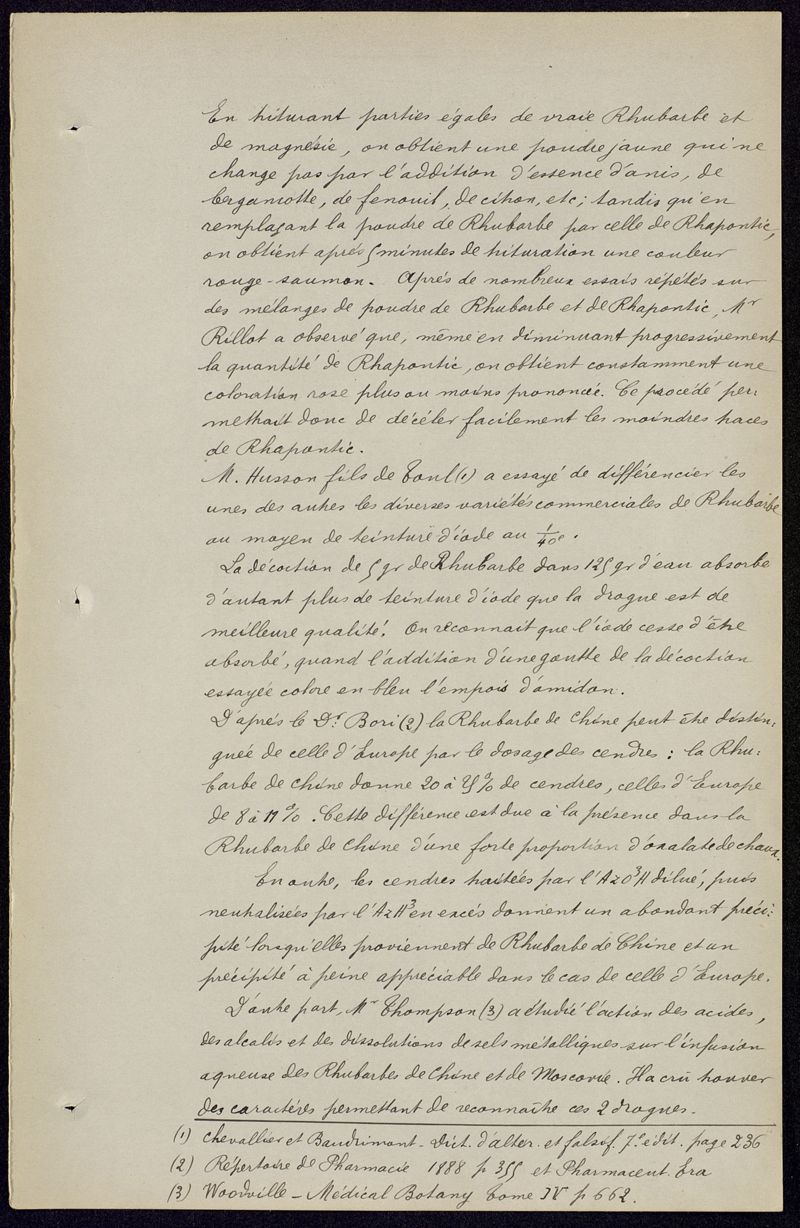 En triturant parties égales de vraie Rhubarbe et
de magnésie, on obtient une poudre jaune qui ne
change pas par l'addition d'essence d'anis, de
bergamotte, de fenouil, de citron, etc; tandis qu'en
remplaçant la poudre de Rhubarbe par celle de Rhapontic,
on obtient après 5 minutes de trituration une couleur
rouge-saumon. Après de nombreux essais répétés sur
des mélanges de poudre de Rhubarbe et de Rhapontic, Mr
Rillot a observé que, même en diminuant progressivement
la quantité de Rhapontic, on obtient constamment une
coloration rose plus ou moins prononcée. Ce procédé per-
mettrait donc de décéler facilement les moindres traces
de Rhapontic.
M. Husson fils de Toul (1) a essayé de différencier les
unes des autres les diverses variétés commerciales de Rhubarbe
au moyen de teinture d'iode au 1/40e.
La décoction de 5 gr de Rhubarbe dans 125 gr d'eau absorbe
d'autant plus de teinture d'iode que la drogue est de
meilleure qualité. On reconnait que l'iode cesse d'être
absorbé, quand l'addition d'une goutte de la décoction
essayée colore en bleu l'empois d'amidon.
D'après le Dr Bori (2) la Rhubarbe de Chine peut être distin-
guée de celle d'Europe par le dosage des cendres: la Rhu-
barbe de Chine donne 20 à 25 % de cendres, celles d'Europe
de 8 à 11 %. Cette différence est due à la présence dans la
Rhubarbe de Chine d'une forte proportion d'oxalate de chaux.
En outre, les cendres traitées par l'AzO³H dilué, puis
neutralisées par l'AzH³ en excès donnent un abondant préci-
pité lorsqu'elles proviennent de Rhubarbe de Chine et un
précipité à peine appréciable dans le cas de celle d'Europe.
D'autre part, Mr Thompson (3) a étudié l'action des acides,
des alcalis et des dissolutions de sels métalliques sur l'infusion
aqueuse des Rhubarbes de Chine et de Moscovie. Il a crû trouver
des caractères permettant de reconnaître ces 2 drogues.
(1) Chevallier et Baudrimont - Dict. d'alter. et falsif. 7e édit. page 236
(2) Répertoire de Pharmacie 1888 p 355 et Pharmaceut. Era
(3) Woodville - Médical Botany Tome IV p 662.